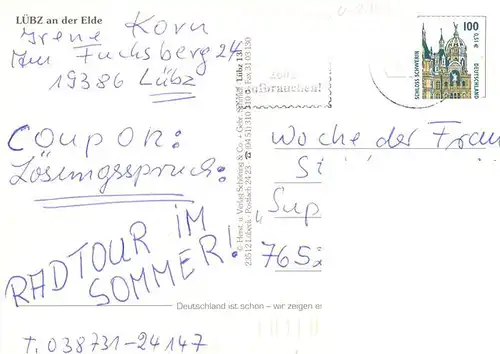 LÜBZ an der Elde
Irene Korn
Am Fuchsberg 24
19386 Lübz
Coupon:
Lösungsspruch:
RADTOUR IM
SOMMER!
T. 038731-24147
Deutschland ist schön – wir zeigen es
© Herst. u. Verlag Schöning & Co. + Gebr. Schmidt
23512 Lübeck - Postfach 24 23 - ☎ (04 51) 310 310 Fax 31 03 130
Lübz 13
100
0,51 €
SCHLOSS SCHWERIN
DEUTSCHLAND
Woche der Frau
"Sup
765